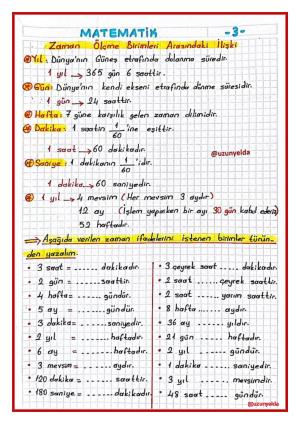 MATEMATİK -3-
Zaman Ölçme Birimleri Arasındaki İlişki
Yıl: Dünya'nın Güneş etrafında dolanma süresidir.
1 yıl → 365 gün 6 saattir.
Gün: Dünya'nın kendi ekseni etrafında dönme süresidir.
1 gün → 24 saattir.
Hafta: 7 güne karşılık gelen zaman dilimidir.
Dakika: 1 saatin 1/60 'ine eşittir.
1 saat → 60 dakikadır.
@uzunyelda
Saniye: 1 dakikanın 1/60 'idir.
1 dakika → 60 saniyedir.
1 yıl → 4 mevsim (Her mevsim 3 aydır)
12 ay (İşlem yaparken bir ayı 30 gün kabul ederiz)
52 haftadır.
Aşağıda verilen zaman ifadelerini istenen birimler türün-
den yazalım.
• 3 saat = ...... dakikadır.
• 2 gün = ...... saattir.
• 4 hafta = ...... gündür.
• 5 ay = ...... gündür.
• 3 dakika = ...... saniyedir.
• 3 yıl = ...... haftadır.
• 6 ay = ...... haftadır.
• 3 mevsim = ...... aydır.
• 120 dakika = ...... saattir.
• 180 saniye = ...... dakikadır.
• 3 çeyrek saat ...... dakikadır.
• 2 saat ...... çeyrek saattir.
• 2 saat ...... yarım saattir.
• 8 hafta ...... aydır.
• 36 ay ...... yıldır.
• 21 gün ...... haftadır.
• 2 yıl ...... aydır.
• 1 dakika ...... saniyedir.
• 3 yıl ...... mevsimdir.
• 48 saat ...... gündür.
@uzunyelda